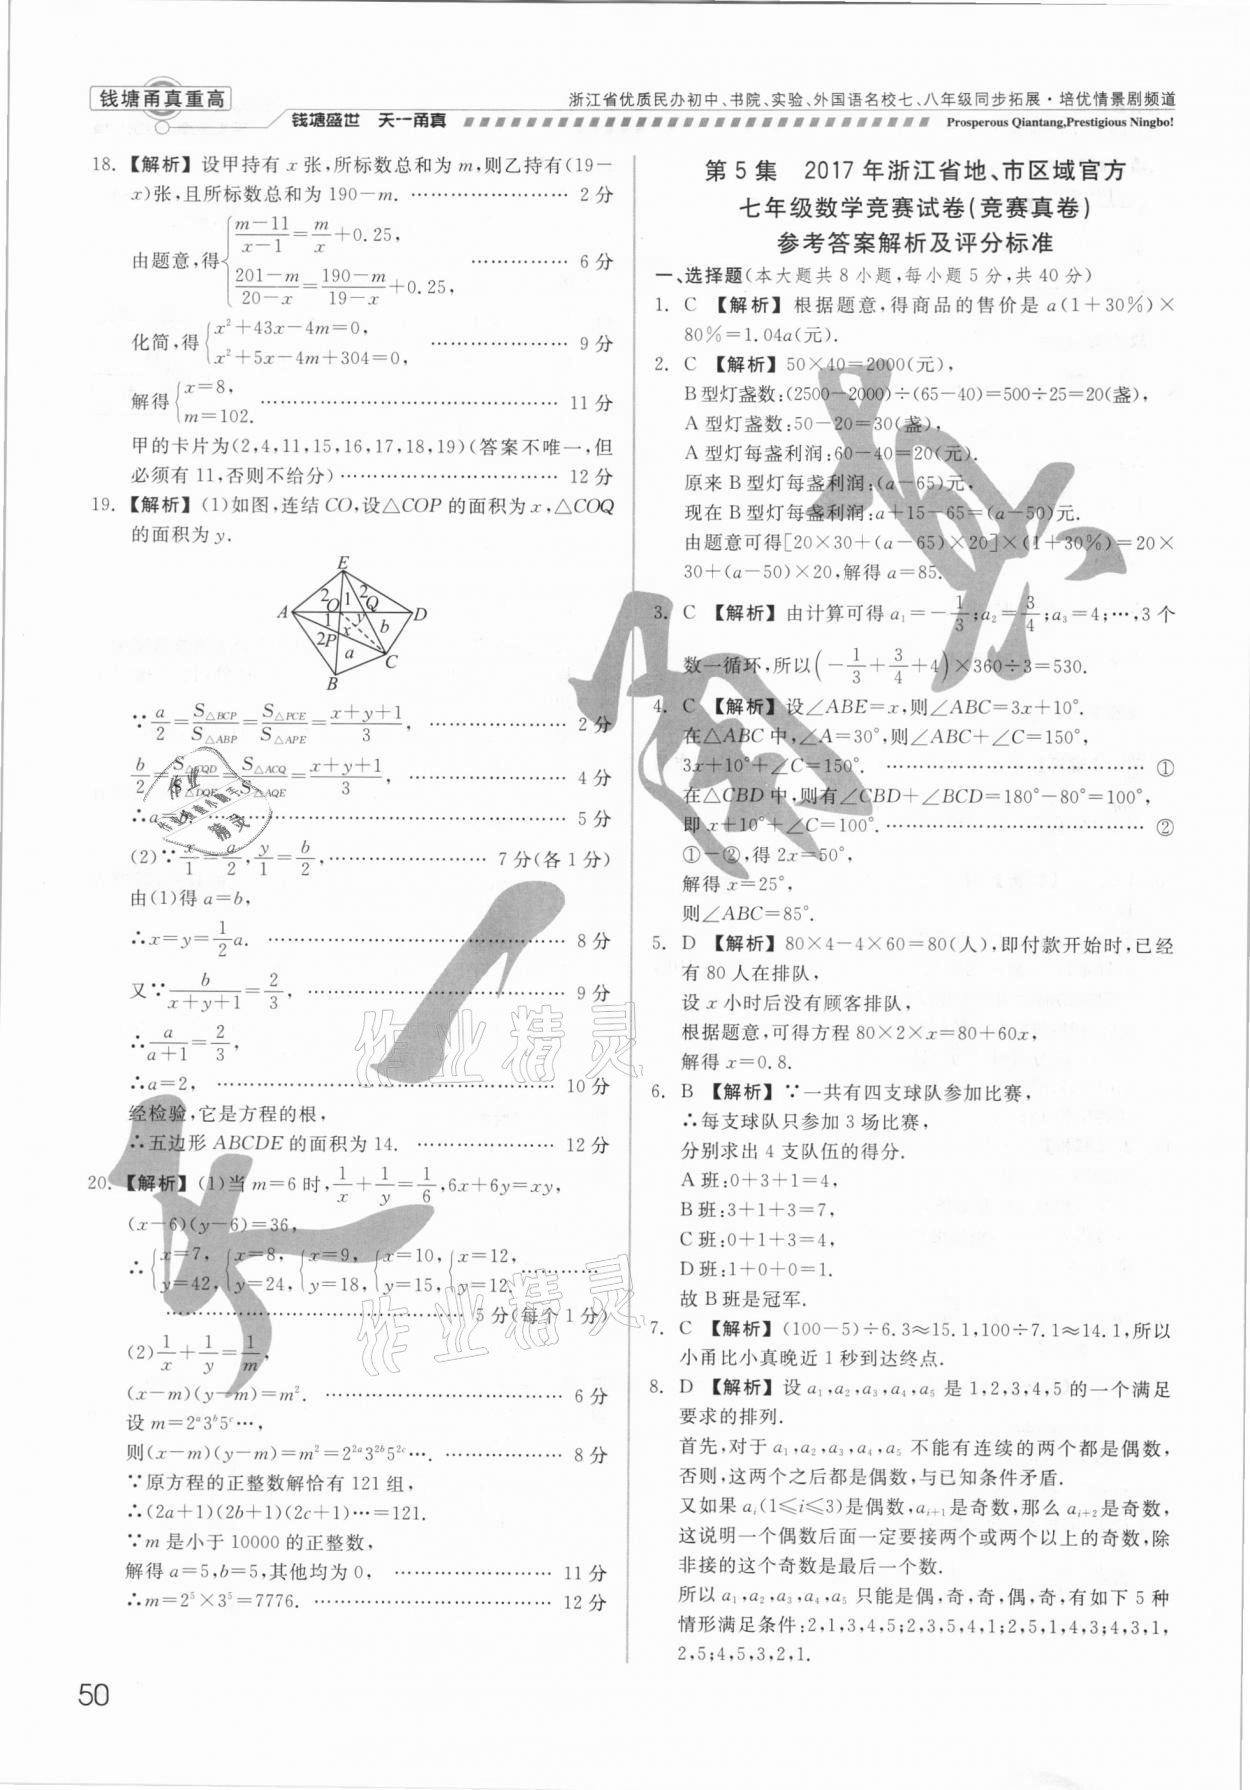 钱塘甬真重高
浙江省优质民办初中、书院、实验、外国语名校七、八年级同步拓展·培优情景剧频道
钱塘盛世 天一甬真
Prosperous Qiantang,Prestigious Ningbo!
18. 【解析】设甲持有 x 张,所标数总和为 m,则乙持有(19-
x)张,且所标数总和为 190-m. ………………… 2 分
由题意,得{(m-11)/(x-1)=m/x+0.25,
(201-m)/(20-x)=(190-m)/(19-x)+0.25, …………… 6 分
化简,得{x²+43x-4m=0,
x²+5x-4m+304=0, ………………… 9 分
解得{x=8,
m=102. ………………………………… 11 分
甲的卡片为(2,4,11,15,16,17,18,19)(答案不唯一,但
必须有 11,否则不给分)………………………… 12 分
19. 【解析】(1)如图,连结 CO,设△COP 的面积为 x,△COQ
的面积为 y.
E
2 O 1 2 Q
A D
1 y b
2P x
a C
B
∵a/2=S△BCP/S△ABP=S△PCE/S△APE=(x+y+1)/3, ………………… 2 分
b/2=S△CQD/S△DQE=S△ACQ/S△AQE=(x+y+1)/3, ………………… 4 分
∴a=b. ………………………………… 5 分
(2)∵x/1=a/2,y/1=b/2,………………… 7 分(各 1 分)
由(1)得 a=b,
∴x=y=1/2a. ………………………………… 8 分
又∵b/(x+y+1)=2/3, ………………………………… 9 分
∴a/(a+1)=2/3,
∴a=2, ………………………………… 10 分
经检验,它是方程的根,
∴五边形 ABCDE 的面积为 14. ………………… 12 分
20. 【解析】(1)当 m=6 时,1/x+1/y=1/6,6x+6y=xy,
(x-6)(y-6)=36,
∴{x=7,{x=8,{x=9,{x=10,{x=12,
y=42,y=24,y=18,y=15,y=12. …………
………………………………… 5 分(每个 1 分)
(2)1/x+1/y=1/m,
(x-m)(y-m)=m². ………………………… 6 分
设 m=2ᵃ3ᵇ5ᶜ…,
则(x-m)(y-m)=m²=2²ᵃ3²ᵇ5²ᶜ…. ……………… 8 分
∵原方程的正整数解恰有 121 组,
∴(2a+1)(2b+1)(2c+1)…=121.
∵m 是小于 10000 的正整数,
解得 a=5,b=5,其他均为 0, ………………… 11 分
∴m=2⁵×3⁵=7776. ………………………… 12 分
50
第 5 集 2017 年浙江省地、市区域官方
七年级数学竞赛试卷(竞赛真卷)
参考答案解析及评分标准
一、选择题(本大题共 8 小题,每小题 5 分,共 40 分)
1. C 【解析】根据题意,得商品的售价是 a(1+30%)×
80%=1.04a(元).
2. C 【解析】50×40=2000(元),
B 型灯盏数:(2500-2000)÷(65-40)=500÷25=20(盏),
A 型灯盏数:50-20=30(盏),
A 型灯每盏利润:60-40=20(元).
原来 B 型灯每盏利润:(a-65)元,
现在 B 型灯每盏利润:a+15-65=(a-50)元.
由题意可得[20×30+(a-65)×20]×(1+30%)=20×
30+(a-50)×20,解得 a=85.
3. C 【解析】由计算可得 a₁=-1/3;a₂=3/4;a₃=4;…,3 个
数一循环,所以(-1/3+3/4+4)×360÷3=530.
4. C 【解析】设∠ABE=x,则∠ABC=3x+10°.
在△ABC 中,∠A=30°,则∠ABC+∠C=150°,
3x+10°+∠C=150°. ………………………… ①
在△CBD 中,则有∠CBD+∠BCD=180°-80°=100°,
即 x+10°+∠C=100°. ………………………… ②
①-②,得 2x=50°,
解得 x=25°,
则∠ABC=85°.
5. D 【解析】80×4-4×60=80(人),即付款开始时,已经
有 80 人在排队,
设 x 小时后没有顾客排队,
根据题意,可得方程 80×2×x=80+60x,
解得 x=0.8.
6. B 【解析】∵一共有四支球队参加比赛,
∴每支球队只参加 3 场比赛,
分别求出 4 支队伍的得分.
A 班:0+3+1=4,
B 班:3+1+3=7,
C 班:0+1+3=4,
D 班:1+0+0=1.
故 B 班是冠军.
7. C 【解析】(100-5)÷6.3≈15.1,100÷7.1≈14.1,所以
小甬比小真晚近 1 秒到达终点.
8. D 【解析】设 a₁,a₂,a₃,a₄,a₅ 是 1,2,3,4,5 的一个满足
要求的排列.
首先,对于 a₁,a₂,a₃,a₄,a₅ 不能有连续的两个都是偶数,
否则,这两个之后都是偶数,与已知条件矛盾.
又如果 aᵢ(1≤i≤3)是偶数,aᵢ₊₁是奇数,那么 aᵢ₊₂是奇数,
这说明一个偶数后面一定要接两个或两个以上的奇数,除
非接的这个奇数是最后一个数.
所以 a₁,a₂,a₃,a₄,a₅ 只能是偶,奇,奇,偶,奇,有如下 5 种
情形满足条件:2,1,3,4,5;2,3,5,4,1;2,5,1,4,3;4,3,1,
2,5;4,5,3,2,1.
作业精灵
作业精灵